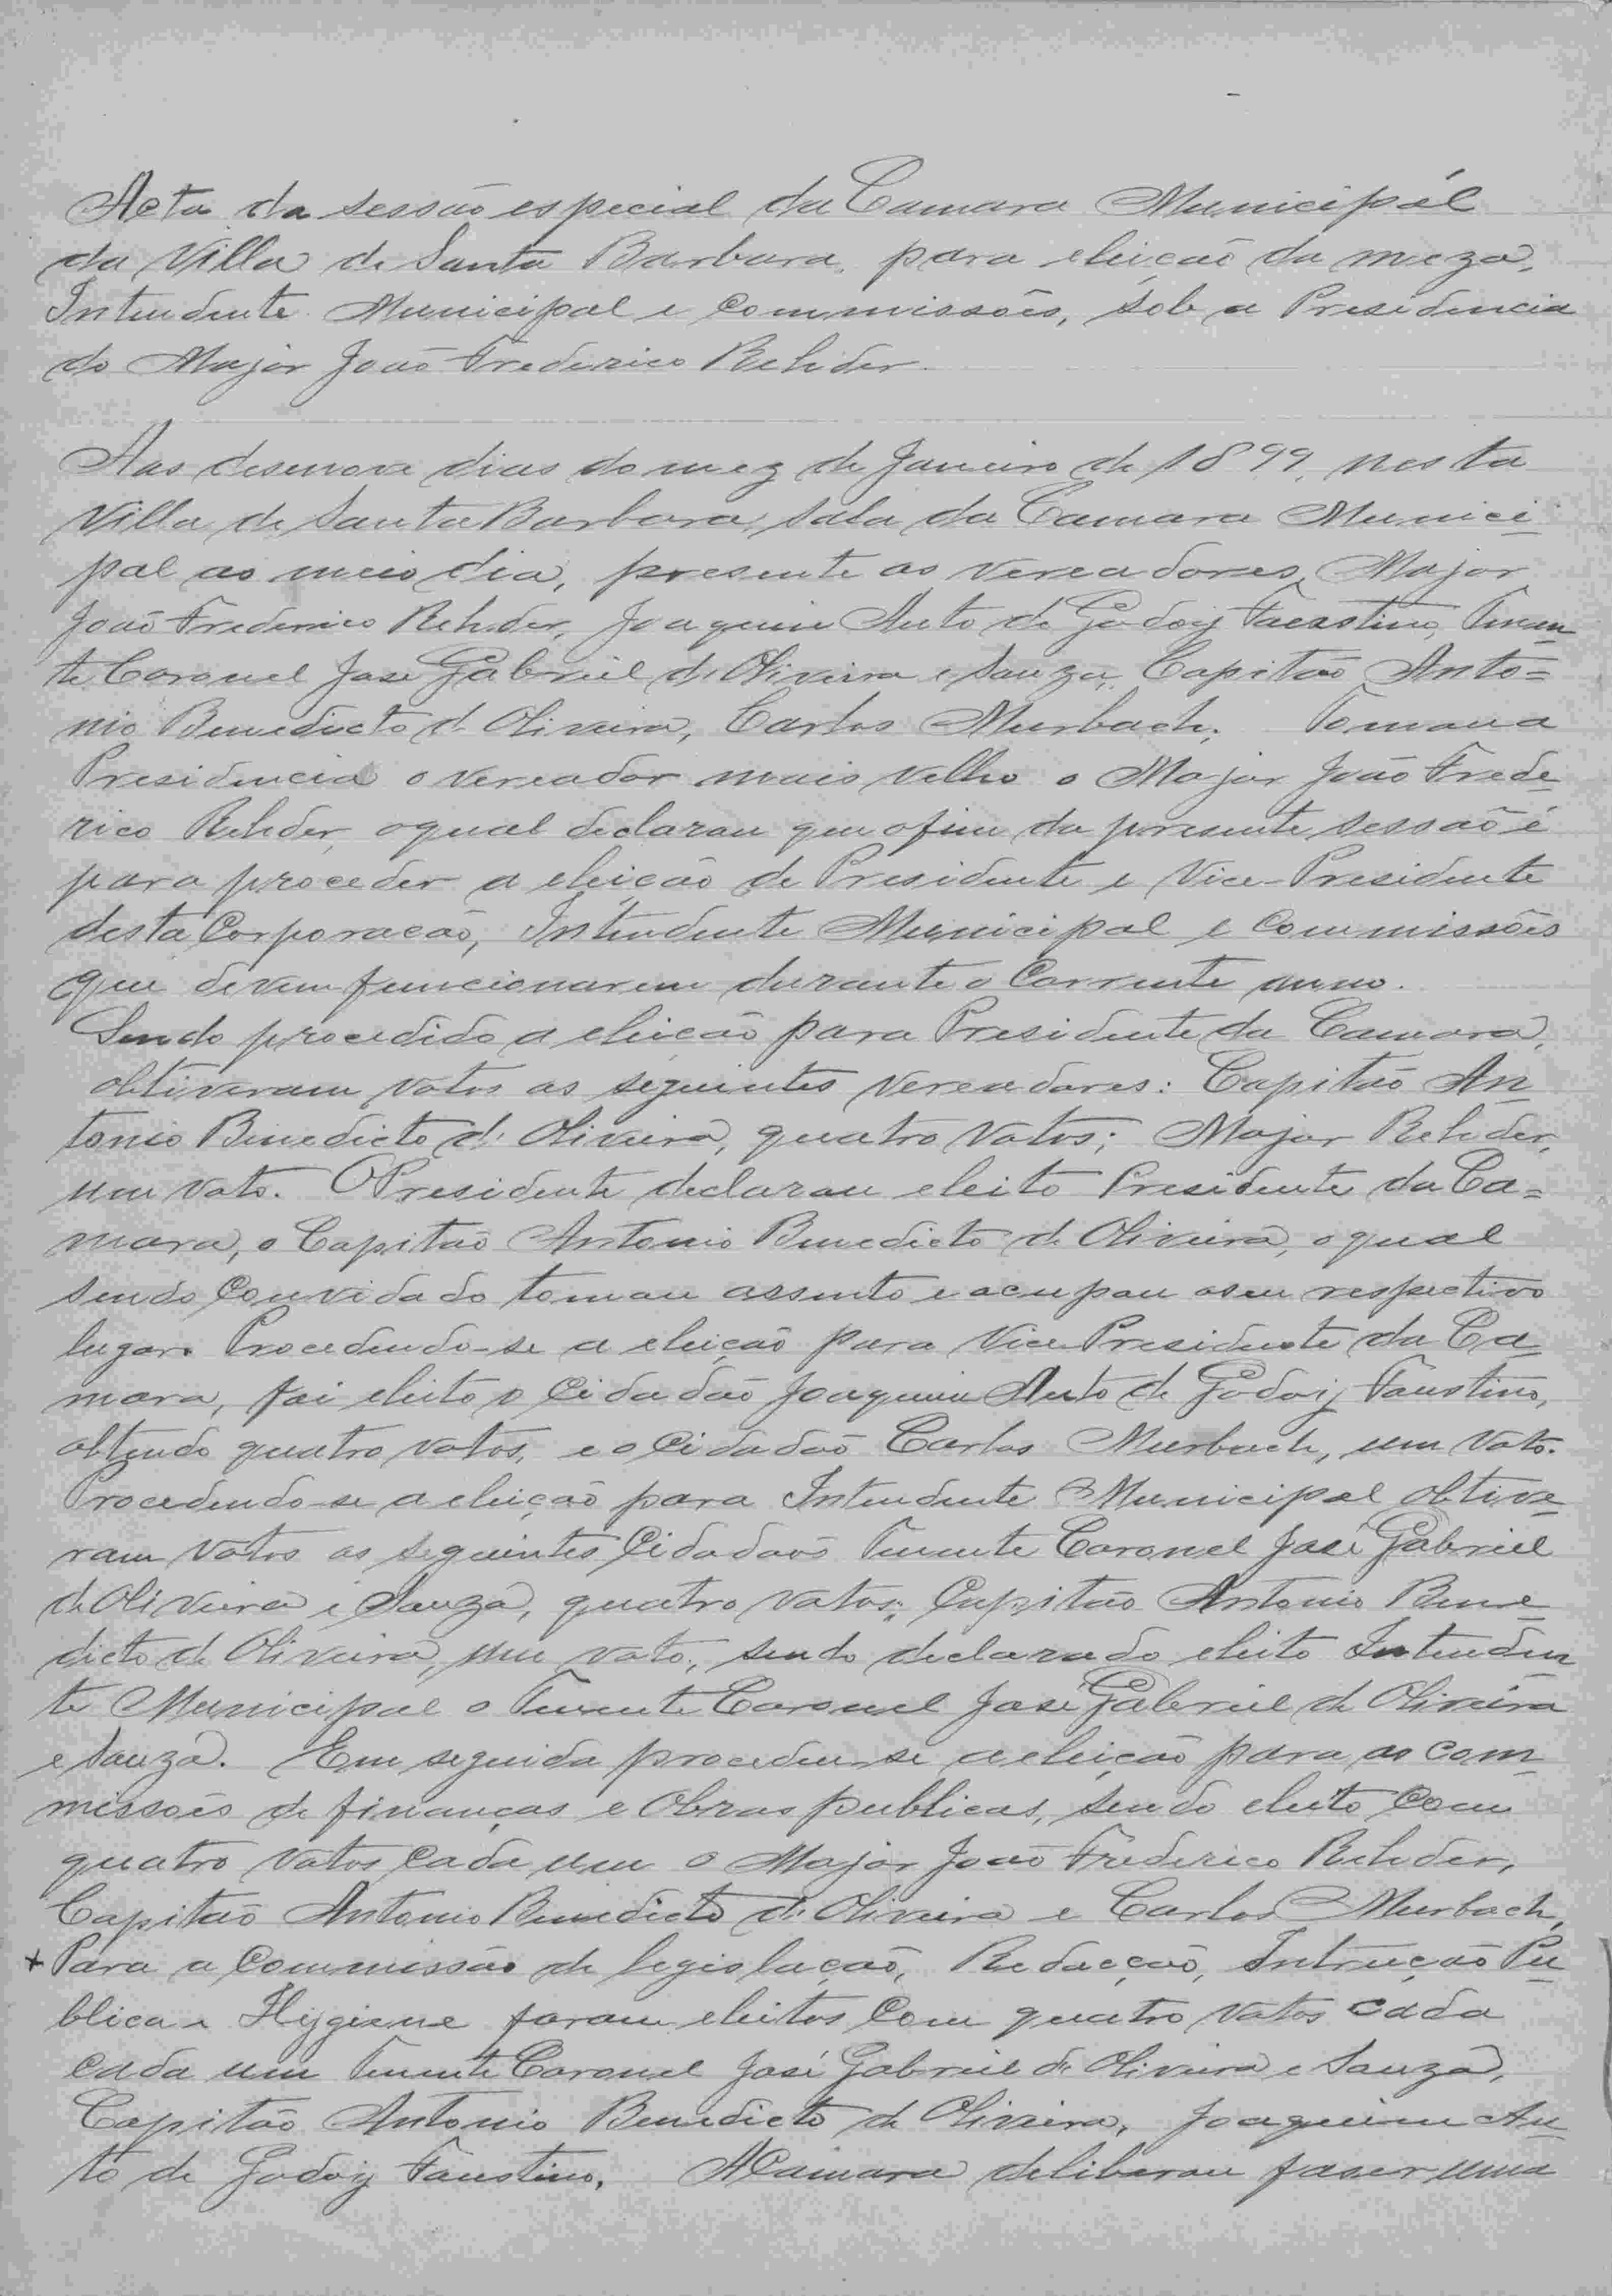 Acta da sessão especial da Camara Municipál
da Villa de Santa Barbara, para eleição da meza,
Intendente Municipal e Commissões, sob a Presidencia
do Major João Frederico Rehder.
Aos desenove dias do mez de Janeiro de 1899, nesta
Villa de Santa Barbara, sala da Camara Munici-
pal ao meio dia, presente os vereadores, Major
João Frederico Rehder, Joaquim Auto de Godoy Faustino, Tenen-
te Coronel José Gabriel de Oliveira e Souza, Capitão Anto=
nio Benedicto de Oliveira, Carlos Murbach. Tomou a
Presidencia o vereador mais velho o Major João Frede-
rico Rehder, o qual declarou que o fim da presente sessão é
para proceder a eleição de Presidente e Vice-Presidente
desta Corporação, Intendente Municipal e Commissões
que devem funcionarem durante o Corrente anno.
Sendo procedido a eleição para Presidente da Camara,
obtiveram votos os seguintes Vereadores: Capitão An-
tonio Benedicto de Oliveira, quatro votos; Major Rehder,
um voto. O Presidente declarou eleito Presidente da Ca=
mara, o Capitão Antonio Benedicto de Oliveira, o qual
sendo Convidado tomou assento e acupou o seu respectivo
lugar. Procedendo-se a eleição para Vice Presidente da Ca-
mara, foi eleito o Cidadão Joaquim Auto de Godoy Faustino,
obtendo quatro votos, e o Cidadão Carlos Murbach, um voto.
Procedendo-se a eleição para Intendente Municipal obtive-
ram votos os seguintes Cidadãos Tenente Coronel José Gabriel
de Oliveira e Souza, quatro votos; Capitão Antonio Bene-
dicto de Oliveira, um voto; sendo declarado eleito Intenden
te Municipal o Tenente Coronel José Gabriel de Oliveira
e Souza. Em seguida procedeu-se a eleição para as com-
missões de finanças e Obras publicas, sendo eleito Com
quatro votos Cada um o Major João Frederico Rehder,
Capitão Antonio Benedicto de Oliveira e Carlos Murbach,
+ Para a Commissão de legislação, Redacção, Intrução Pu-
blica e Hygiene foram eleitos Com quatro votos cada
cada um Tenente Coronel José Gabriel de Oliveira e Souza,
Capitão Antonio Benedicto de Oliveira, Joaquim Au-
to de Godoy Faustino. A Camara deliberou faser uma